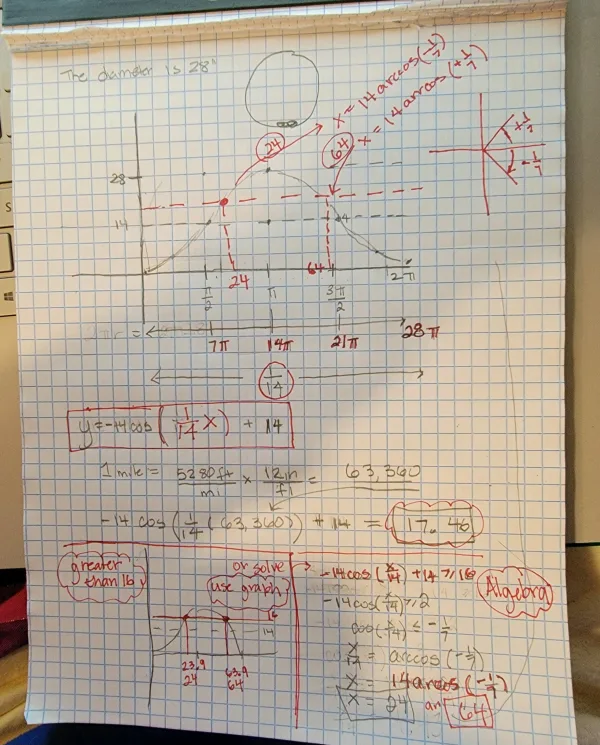 The diameter is 28"
x = 14 arccos(-1/7)
x = 14 arccos(+1/7)
24
64
+1/7
-1/7
28
14
24
64
π/2
π
3π/2
2π
2πr =
7π
14π
21π
28π
1/14
y = -14 cos (1/14 x) + 14
1 mile = 5280 ft/mi × 12 in/ft = 63,360
-14 cos (1/14 (63,360)) + 14 = 17.46
greater than 16
or solve
use graph
16
14
23.9
24
63.9
64
Algebra
-14 cos (x/14) + 14 ≥ 16
-14 cos (x/14) ≥ 2
cos (x/14) ≤ -1/7
x/14 = arccos (-1/7)
x = 14 arccos (-1/7)
x = 24 an 64